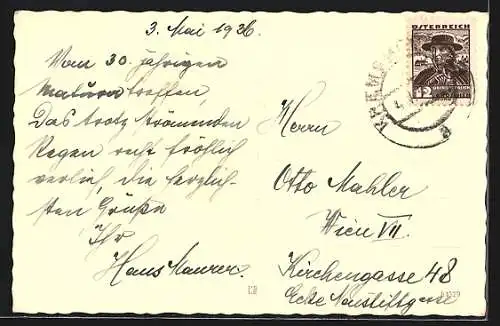 3. Mai 1936
Vom 30. jährigen
Maturatreffen,
Das trotz strömenden
Regen recht fröhlich
verlief, die herzlich-
sten Grüße
Ihr
Hans Maurer.
ÖSTERREICH
12
KREMS
Herrn
Otto Mahler
Wien VII.
Kirchengasse 48
Ecke Neustiftgasse